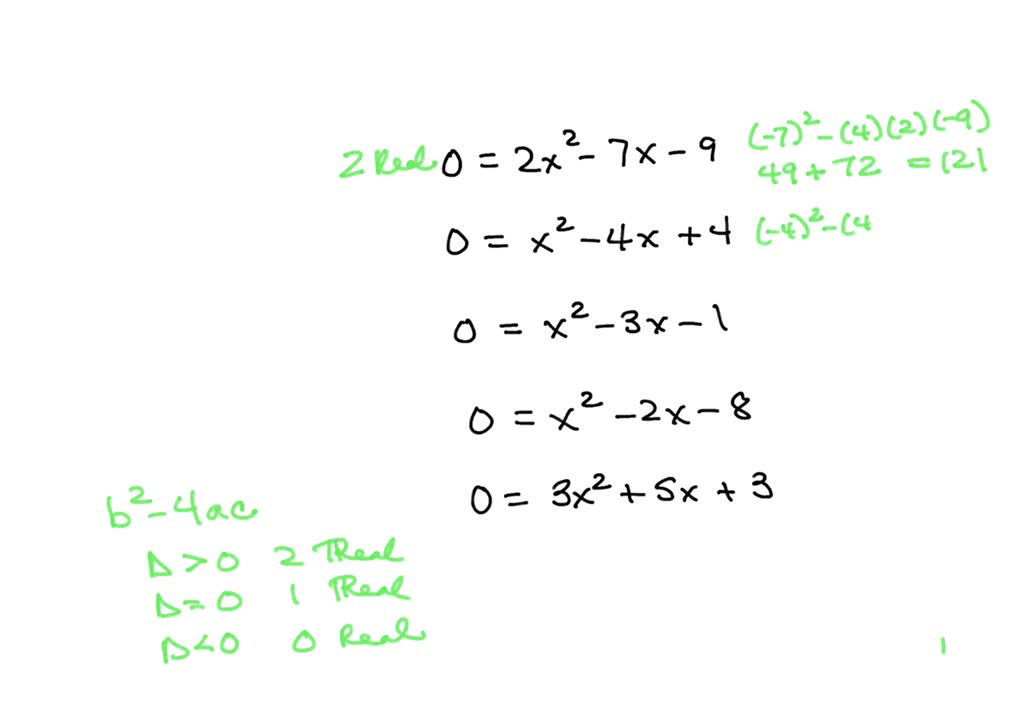 2 Real 0 = 2x² - 7x - 9 (-7)² - (4)(2)(-9)
49 + 72 = 121
0 = x² - 4x + 4 (-4)² - (4
0 = x² - 3x - 1
0 = x² - 2x - 8
0 = 3x² + 5x + 3
b² - 4ac
Δ > 0 2 Real
Δ = 0 1 Real
Δ < 0 0 Real
1